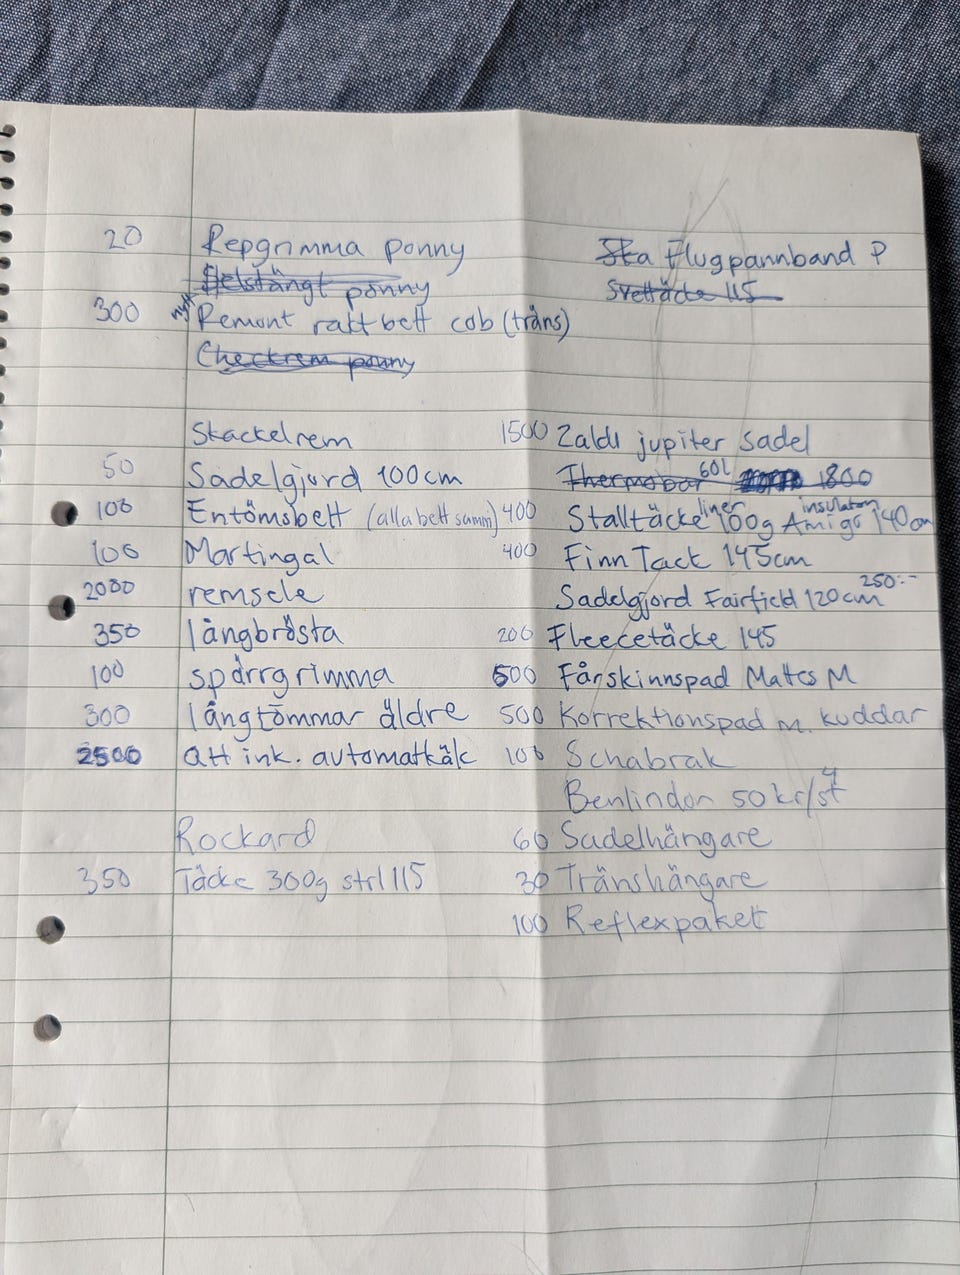 20 Repgrimma ponny
Helstängt ponny
300 nytt Remont rakt bett cob (träns)
Checkrem ponny
Skackelrem
50 Sadelgjord 100cm
100 Entömsbett (alla bett samm)
100 Martingal
2000 remsele
350 långbrösta
100 spärrgrimma
300 långtömmar äldre
2500 att ink. automatkäk
Rockard
350 Täcke 300g strl 115
Ska Flugpannband P
Svettäcke 115
1500 Zaldi jupiter sadel
Thermobar 60l 1800
400 Stalltäcke liner 100g Amigo insulator 140cm
400 FinnTack 145cm
Sadelgjord Fairfield 120cm 250:-
200 Fleecetäcke 145
500 Fårskinnspad Mattes M
500 Korrektionspad m. kuddar
100 Schabrak
Benlindor 50kr/st 4
60 Sadelhängare
30 Tränshängare
100 Reflexpaket